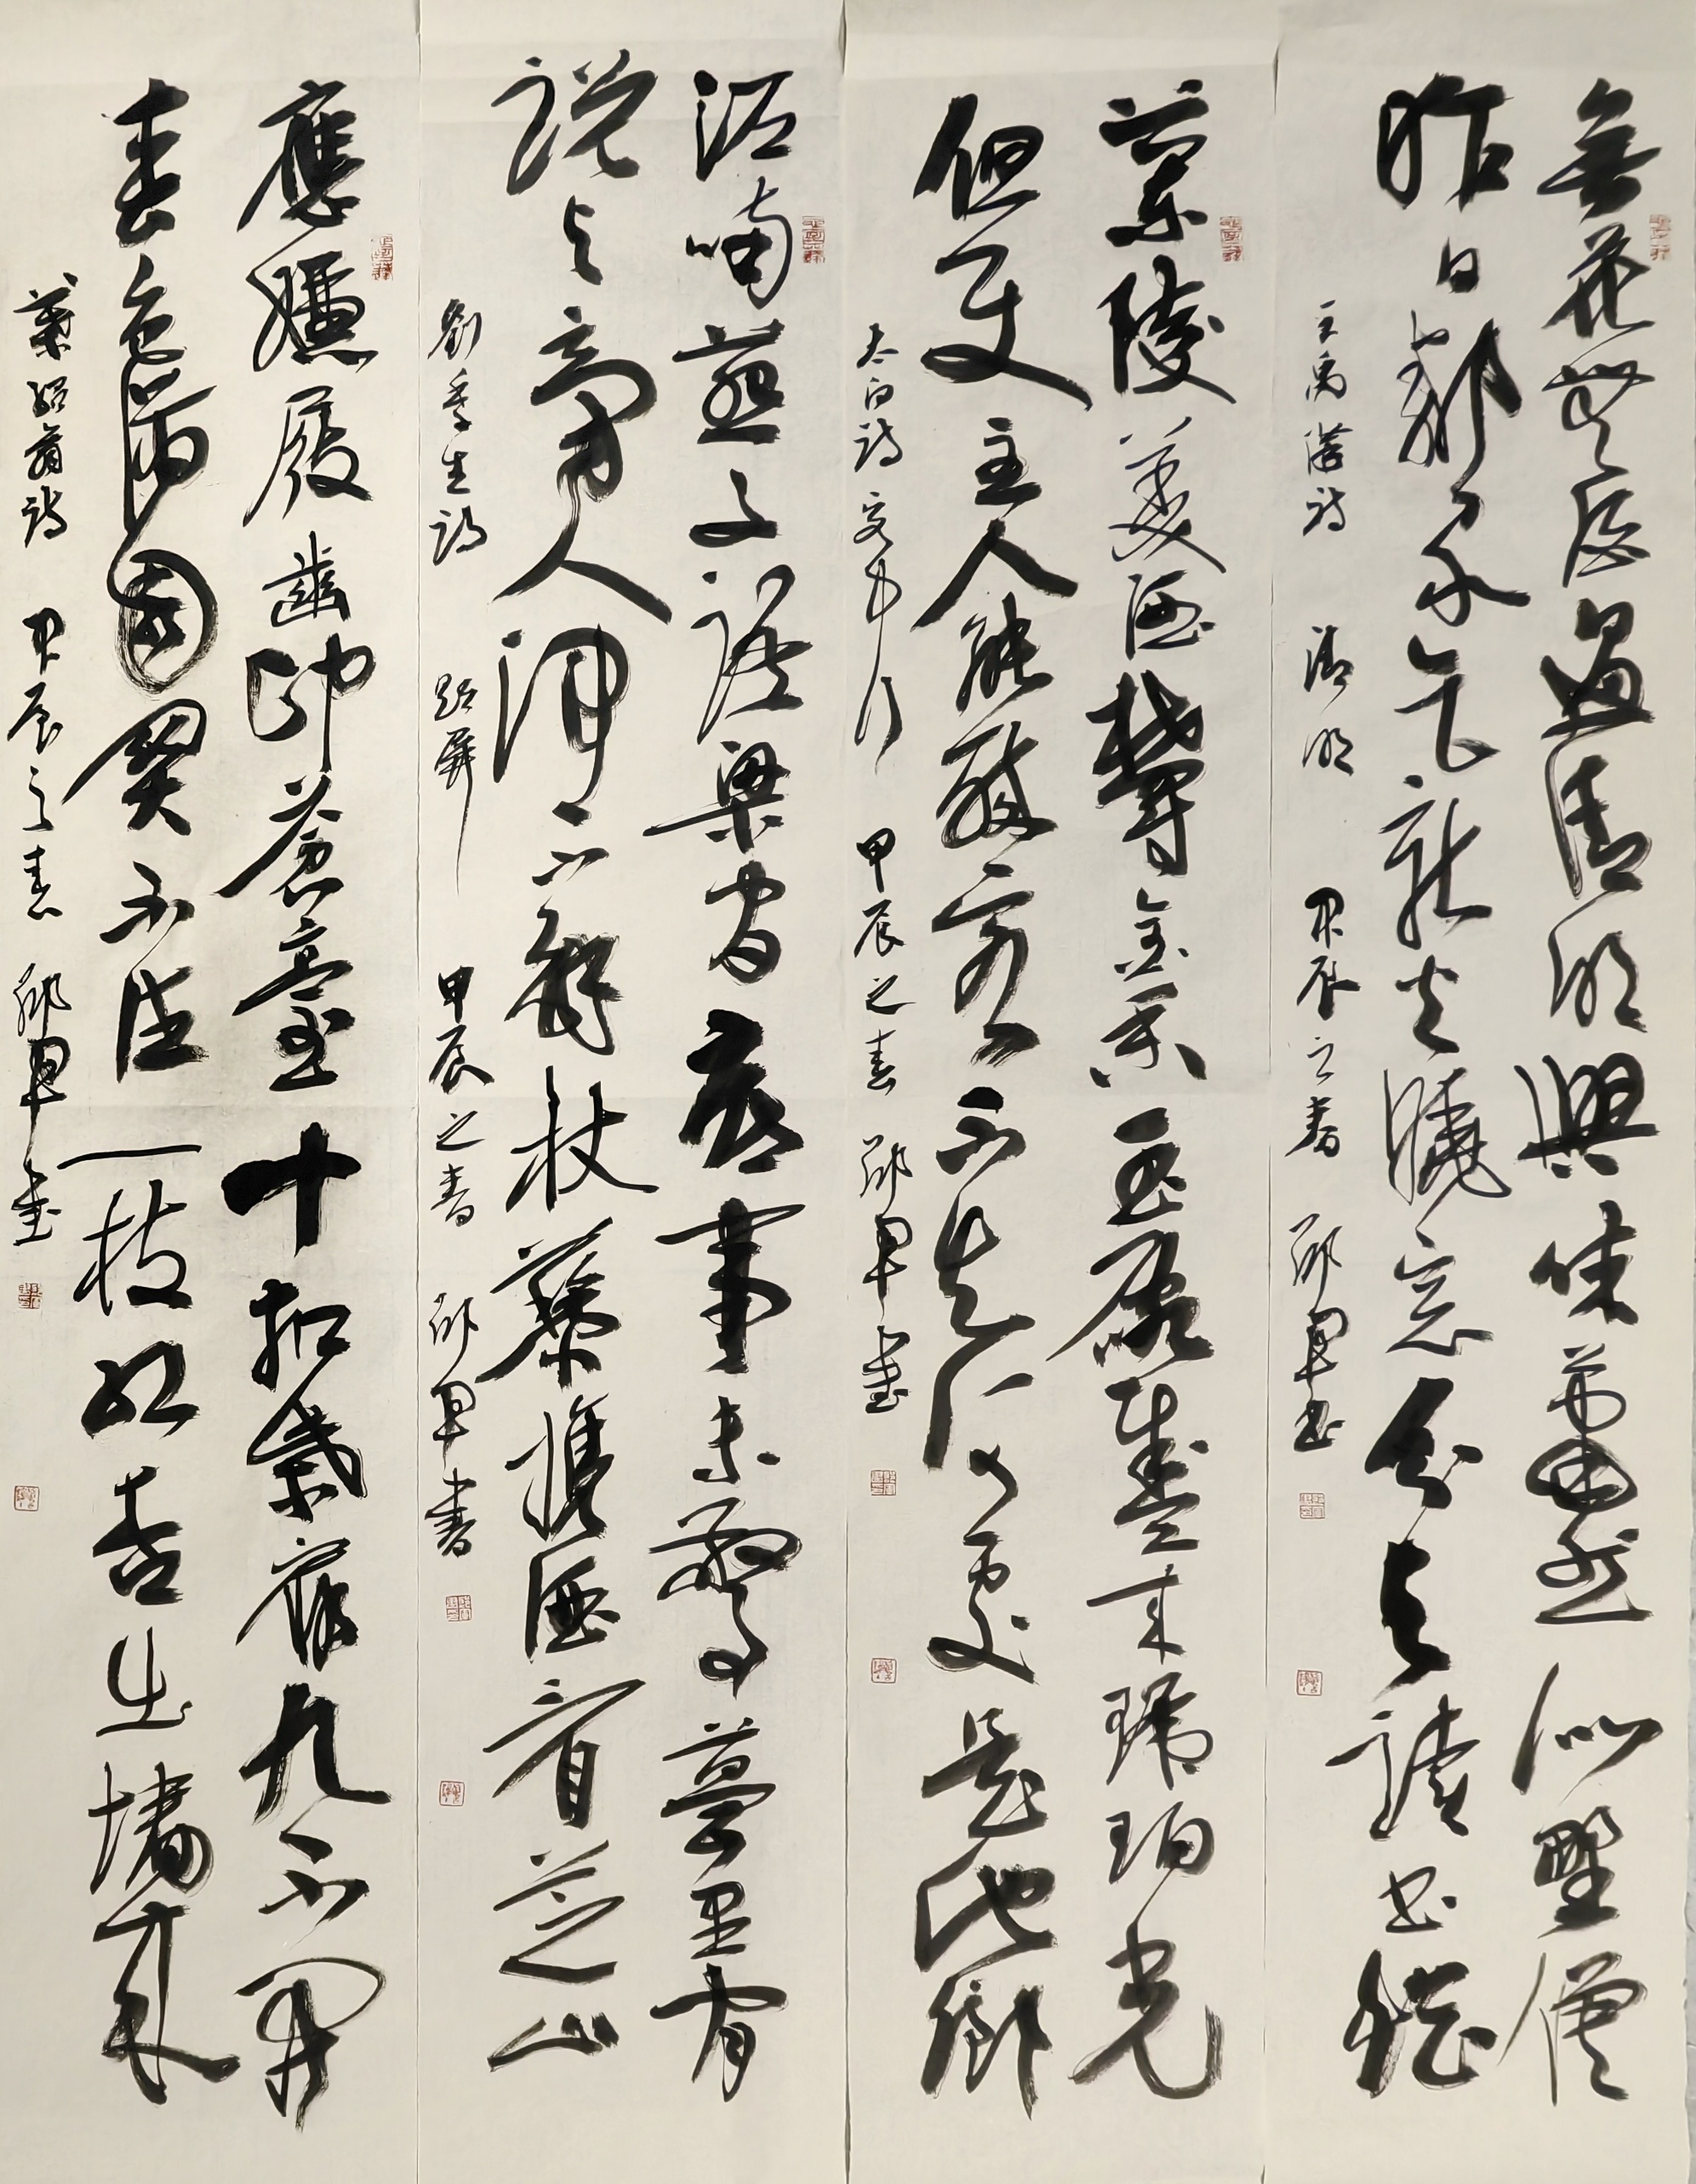 無花無酒過清明興味蕭然似野僧
昨日鄰家乞新火曉窓分與讀書燈
王禹偁詩 清明 甲辰之春 邱 書
蘭陵美酒鬱金香玉碗盛來琥珀光
但使主人能醉客不知何處是他鄉
太白詩客中行 甲辰之春 邱 書
泥喃燕子語梁間底事來驚夢里閒
說與旁人渾不解杖藜攜酒看芝山
劉季孫詩 題屏 甲辰之春 邱 書
應憐屐齒印蒼臺十扣柴扉九不開
春色滿園關不住一枝紅杏出墻來
葉紹翁詩 甲辰之春 邱 書